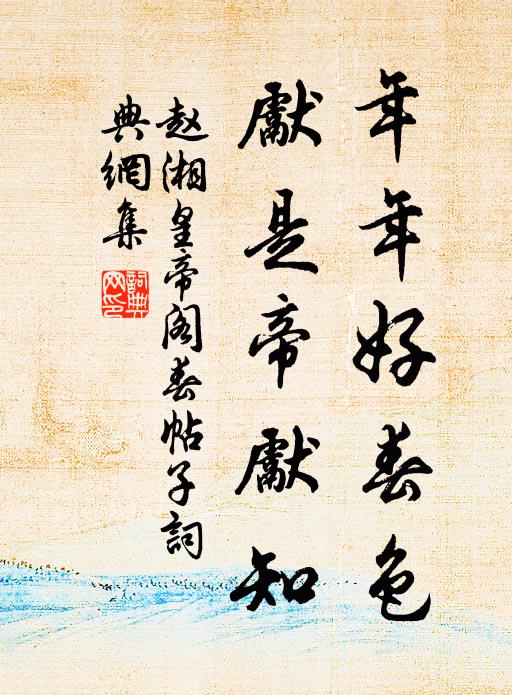 年年好春色
獻是帝獻知
赵湘皇帝阁春帖子詞
典網集
詞典网印